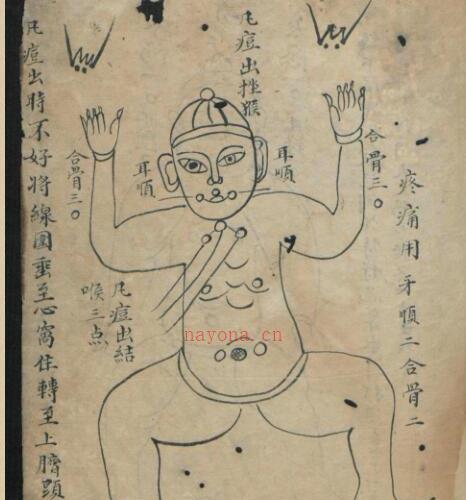 疼痛用牙順二合骨二
合骨三〇
耳順
凡痘出挫猴
耳順
合骨三〇
凡痘出結
喉三点
凡痘出時不好將線圓垂至心窩住轉至上臍
nayona.cn